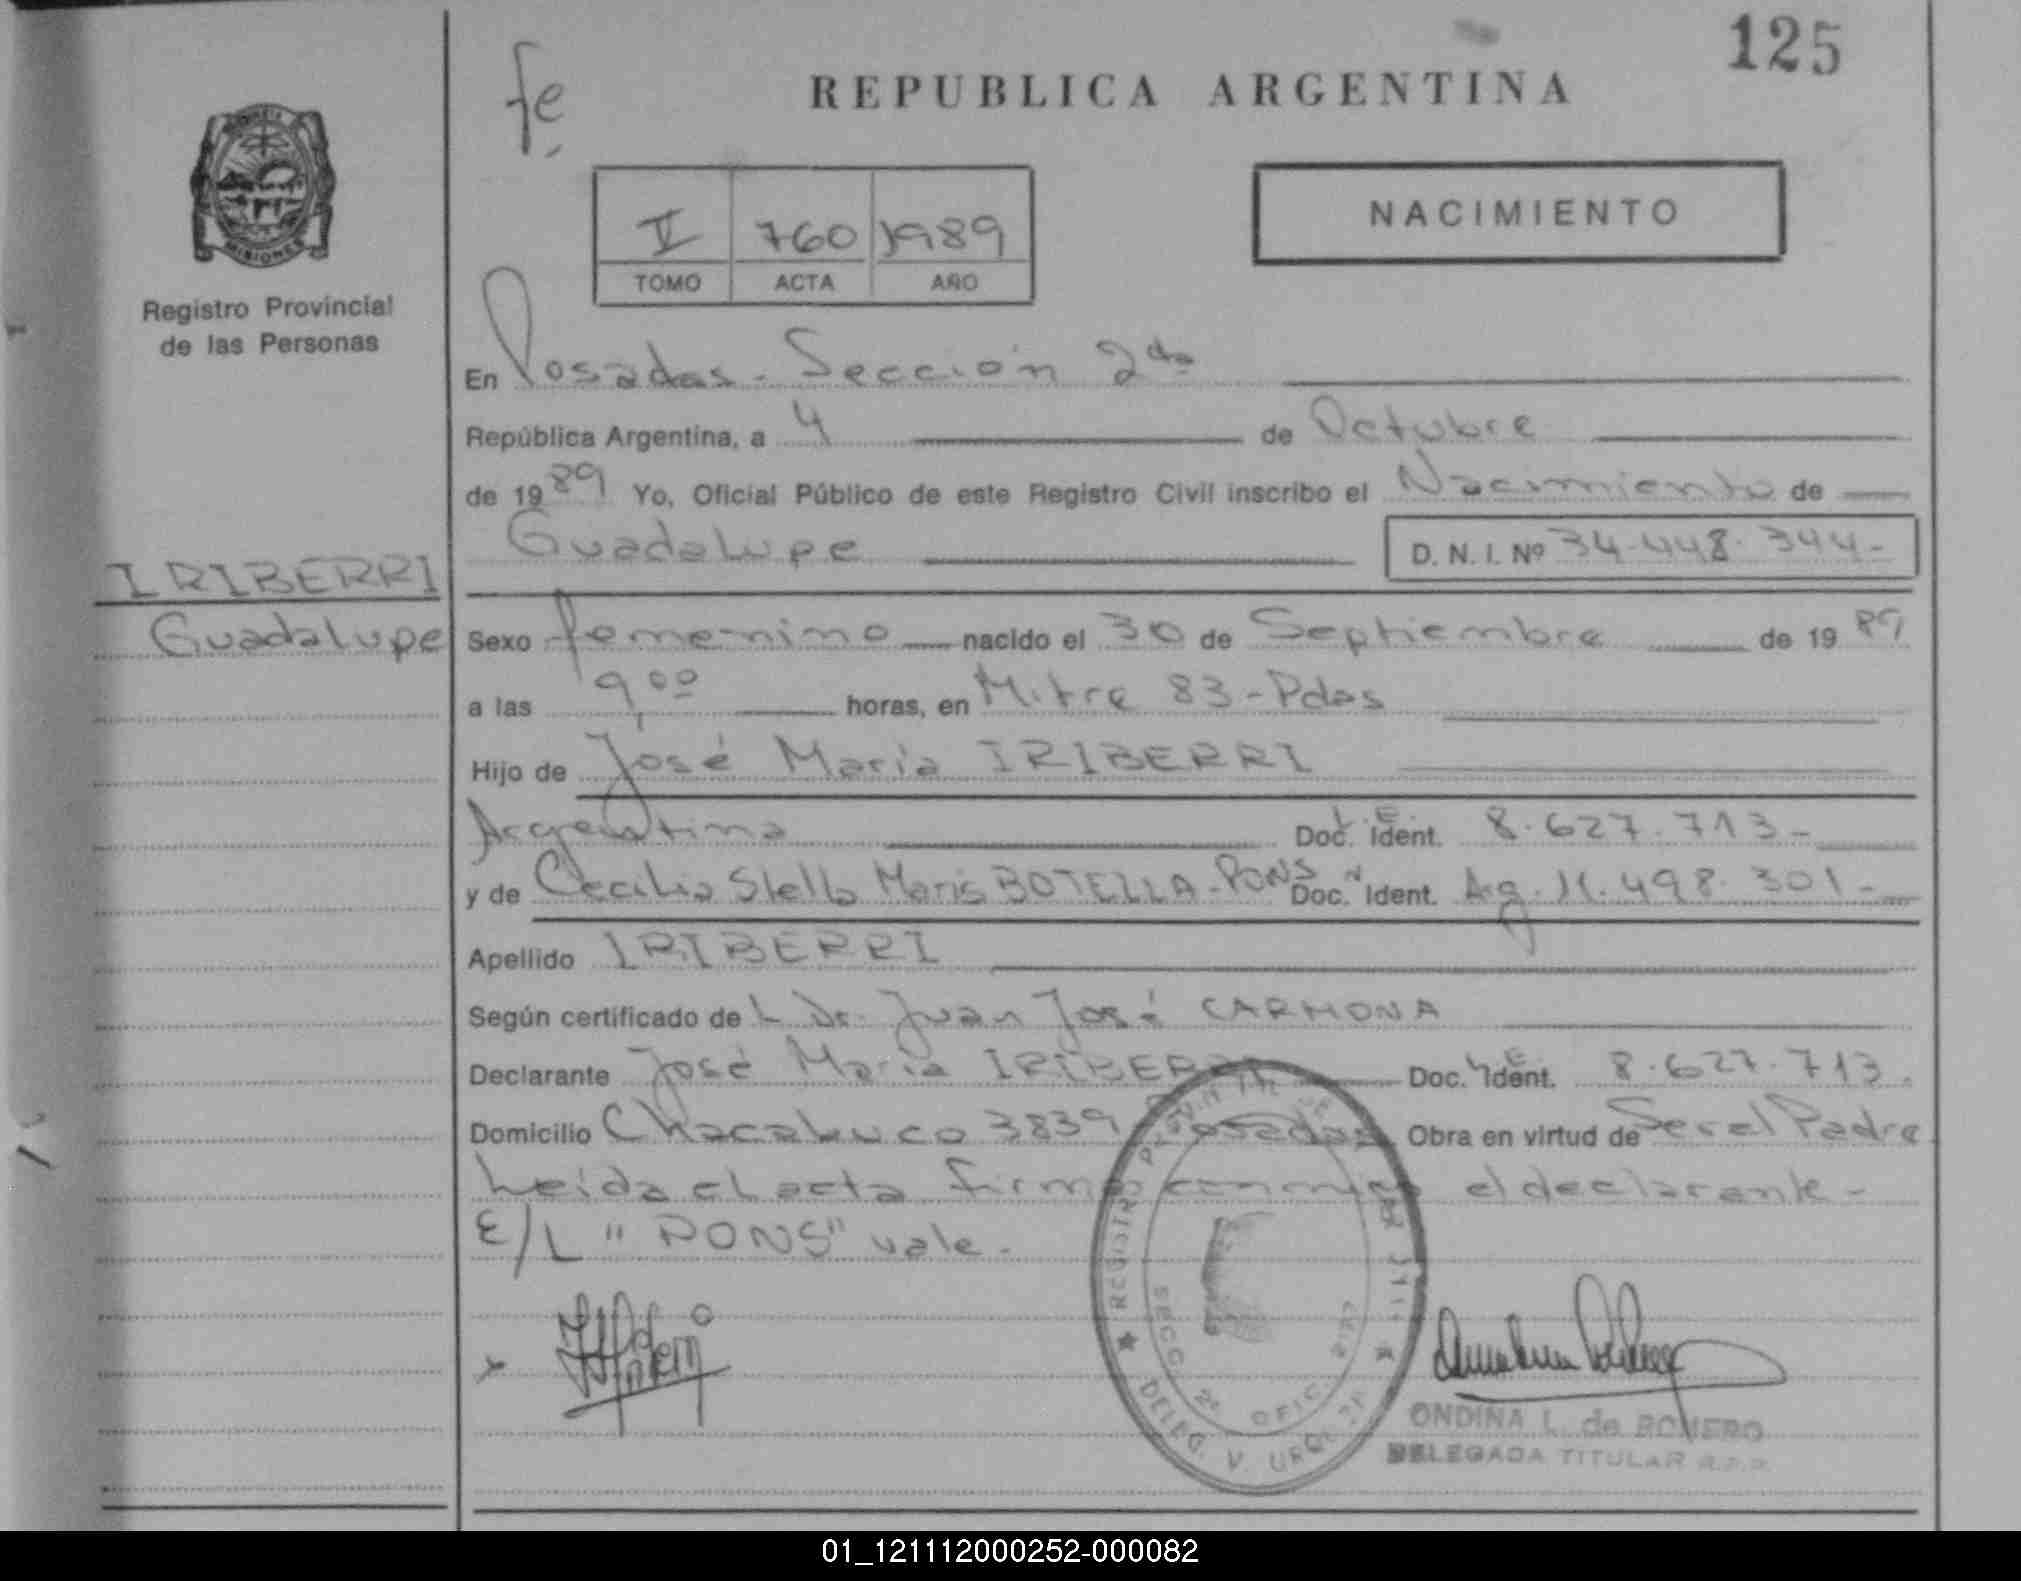 125
fe
REPUBLICA ARGENTINA
MISIONES
Registro Provincial
de las Personas
II 760 1989
TOMO ACTA AÑO
NACIMIENTO
En Posadas - Sección 2da
República Argentina, a 4 de Octubre
de 1989 Yo, Oficial Público de este Registro Civil inscribo el Nacimiento de
Guadalupe D. N. I. Nº 34.448.344-
IRIBERRI
Guadalupe
Sexo femenino nacido el 30 de Septiembre de 1989
a las 9,00 horas, en Mitre 83-Pdas
Hijo de José María IRIBERRI
Argentina Doc. Ident. L.E. 8.627.713-
y de Cecilia Stella Maris BOTELLA-PONS Doc. Ident. Arg. 11.498.301-
Apellido IRIBERRI
Según certificado de L Dr. Juan José CARMONA
Declarante José María IRIBERRI Doc. Ident. L.E. 8.627.713.
Domicilio Chacabuco 3839 Posadas Obra en virtud de Ser el Padre
Leida el acta firma conmigo el declarante-
E/L "PONS" vale-
REGISTRO PROVINCIAL DE
DELEG. V. URQUIZA
SECC. 2º OFIC.
ONDINA L. de ROMERO
DELEGADA TITULAR R.P.P.
01_121112000252-000082